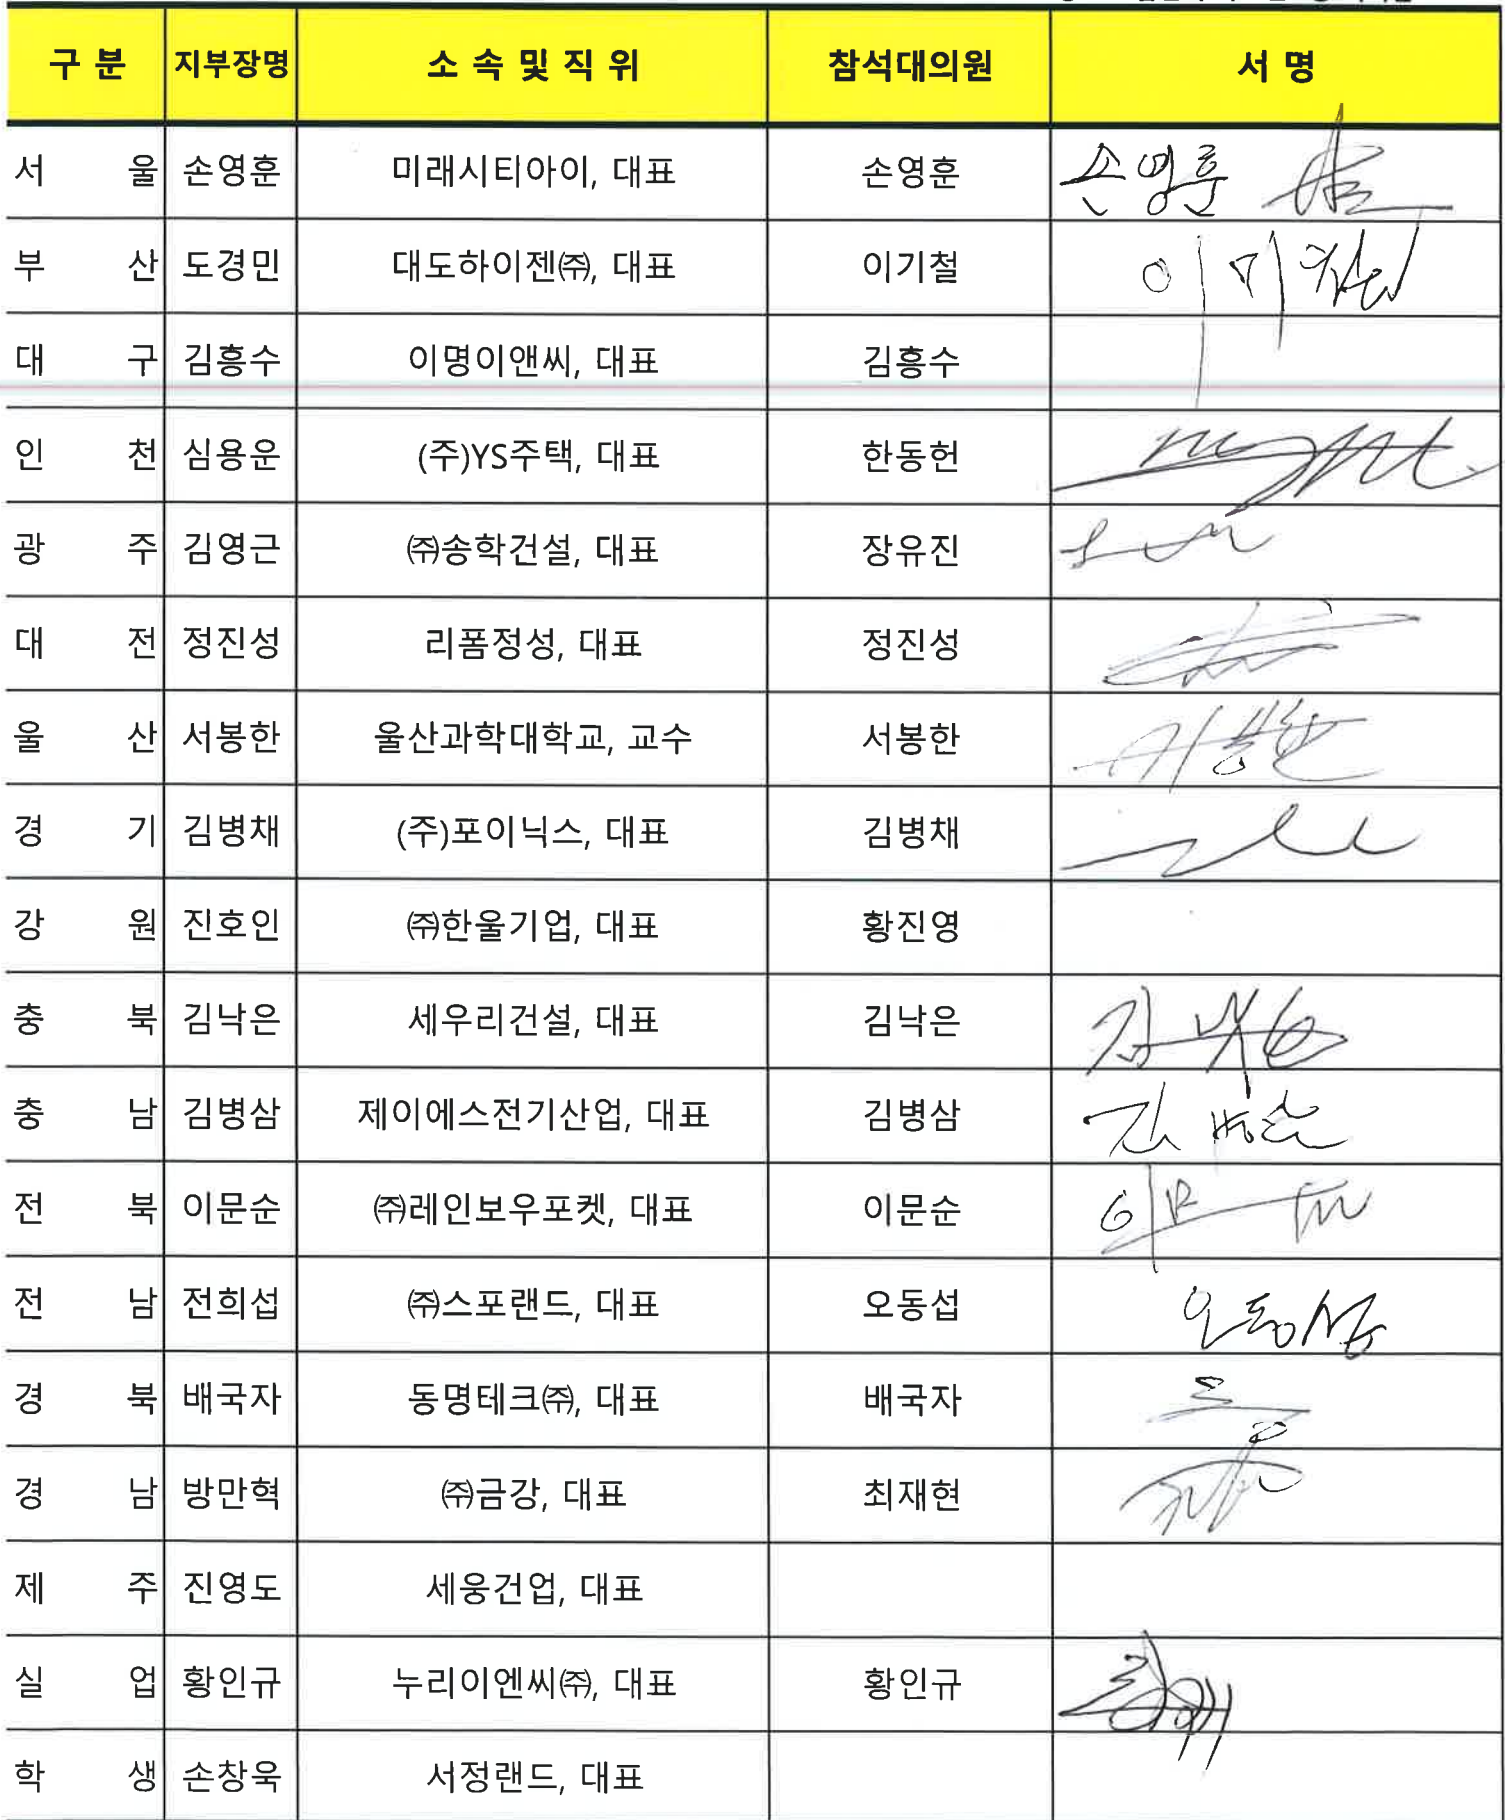 구 분 지부장명 소 속 및 직 위 참석대의원 서 명
서 울 손영훈 미래시티아이, 대표 손영훈 손영훈
부 산 도경민 대도하이젠㈜, 대표 이기철 이기철
대 구 김흥수 이명이앤씨, 대표 김흥수
인 천 심용운 (주)YS주택, 대표 한동헌
광 주 김영근 ㈜송학건설, 대표 장유진
대 전 정진성 리폼정성, 대표 정진성
울 산 서봉한 울산과학대학교, 교수 서봉한 서봉한
경 기 김병채 (주)포이닉스, 대표 김병채
강 원 진호인 ㈜한울기업, 대표 황진영
충 북 김낙은 세우리건설, 대표 김낙은 김낙은
충 남 김병삼 제이에스전기산업, 대표 김병삼 김병삼
전 북 이문순 ㈜레인보우포켓, 대표 이문순
전 남 전희섭 ㈜스포랜드, 대표 오동섭 오동섭
경 북 배국자 동명테크㈜, 대표 배국자
경 남 방만혁 ㈜금강, 대표 최재현
제 주 진영도 세웅건업, 대표
실 업 황인규 누리이엔씨㈜, 대표 황인규
학 생 손창욱 서정랜드, 대표